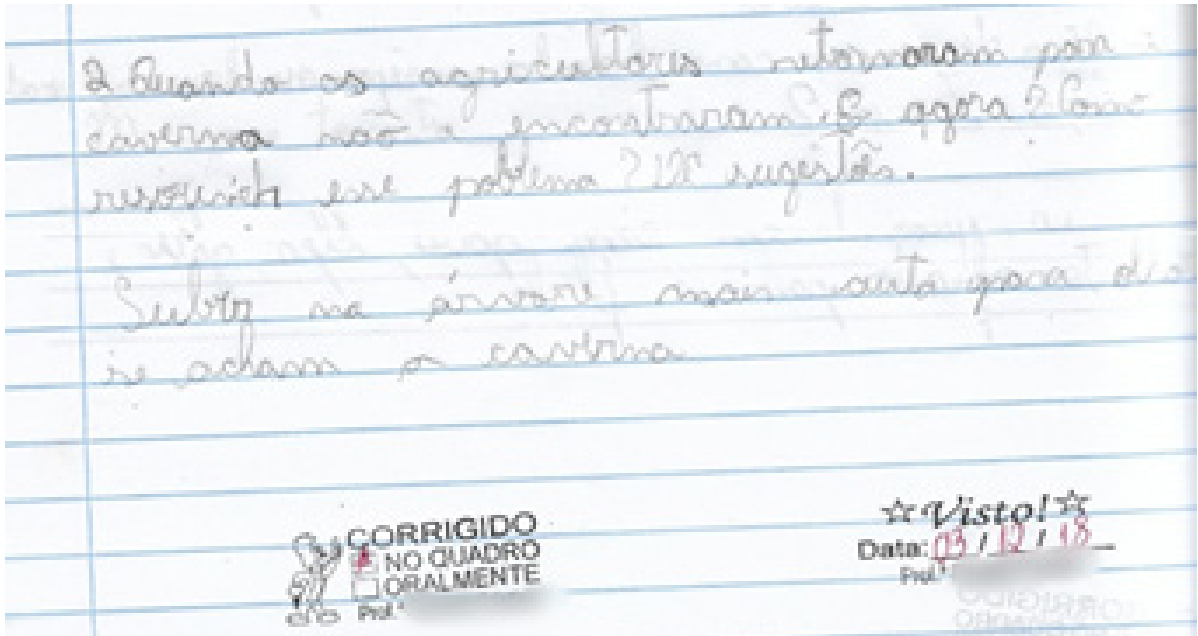 2 Quando os agricultores retornaram para
caverna não a encontraram. E agora? Como
esse poblema? sugestões.
Subir na árvore mais auta para
se acham a caverna
CORRIGIDO
NO QUADRO
ORALMENTE
Prof.ª
☆Visto!☆
Data: 03 / 12 / 18
Prof.ª